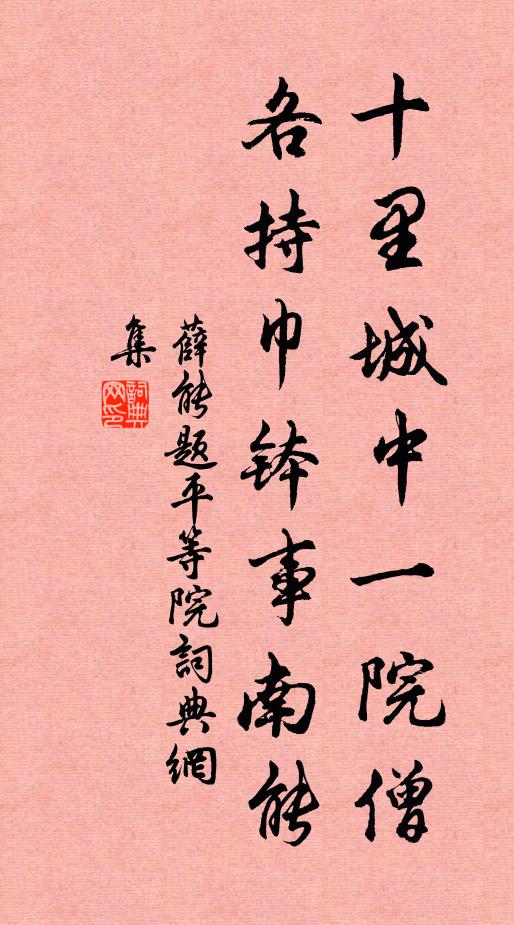 十里城中一院僧
各持巾鉢事南能
薛能題平等院詞典網
集
詞典
网印